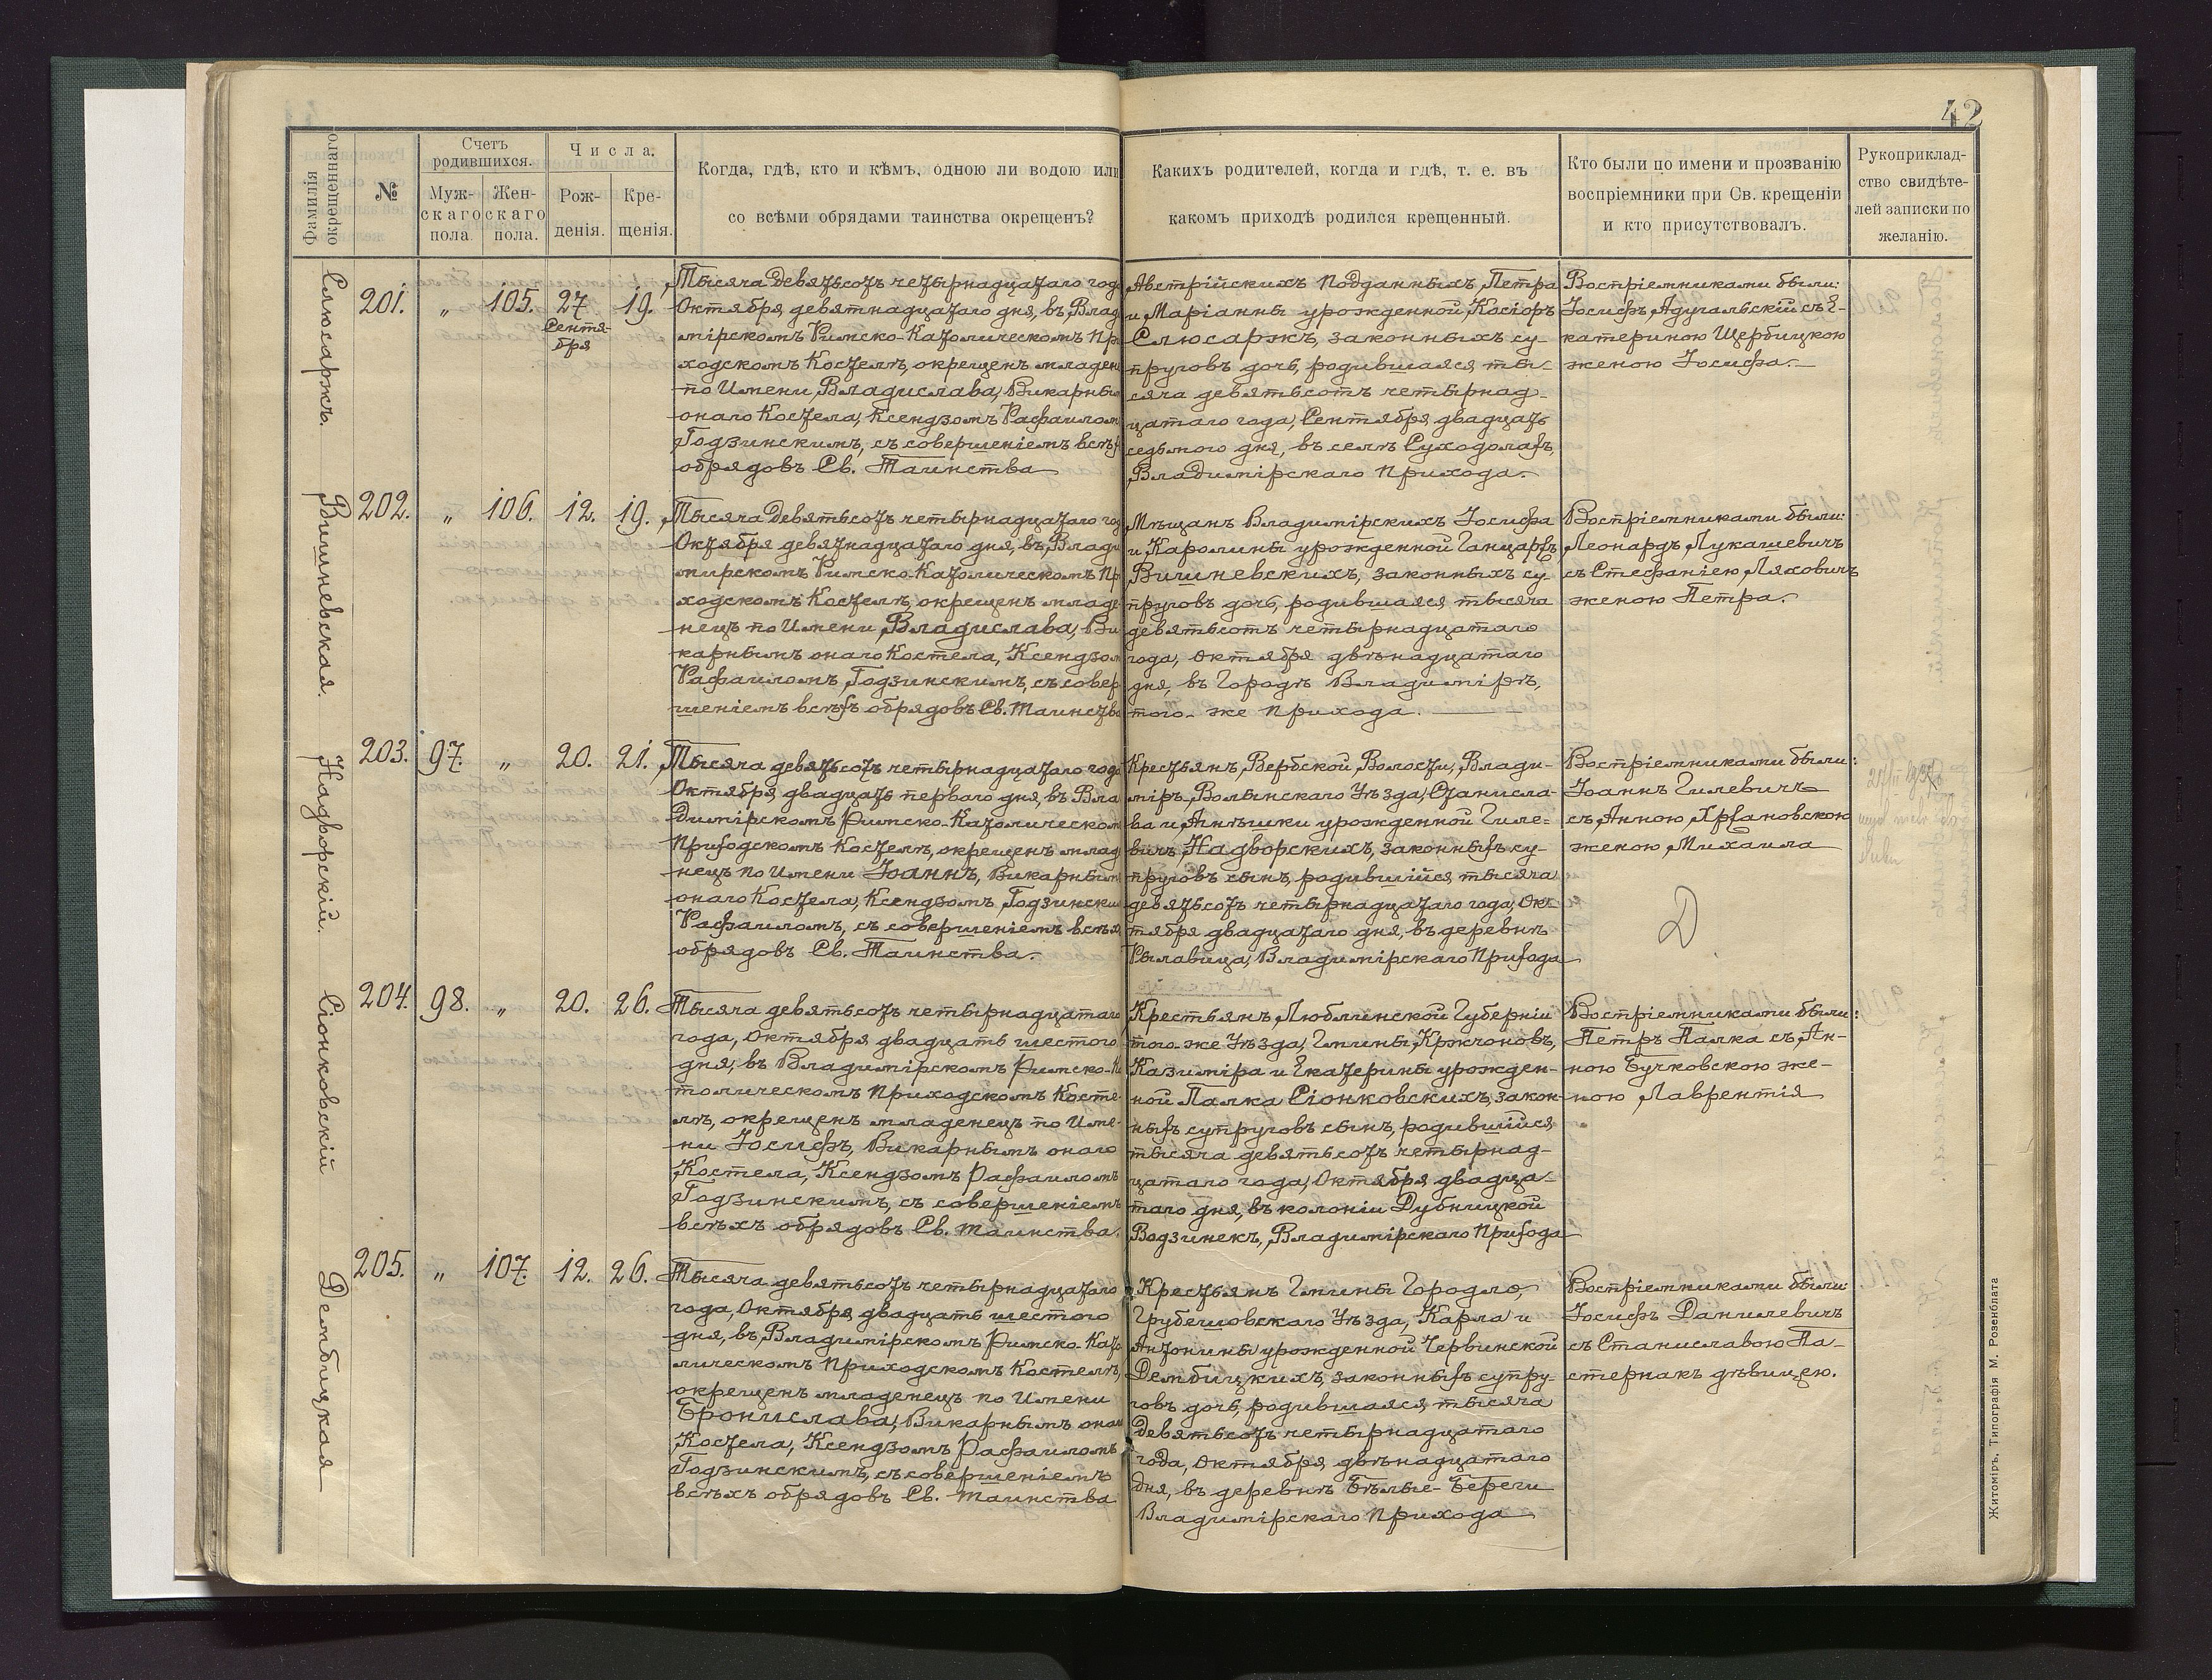 42
Фамилія окрещеннаго
№
Счетъ родившихся.
Муж-
скаго
пола.
Жен-
скаго
пола.
Числа.
Рож-
денія.
Кре-
щенія.
Когда, гдѣ, кто и кѣмъ, одною ли водою или
со всѣми обрядами таинства окрещенъ?
Какихъ родителей, когда и гдѣ, т. е. въ
какомъ приходѣ родился крещенный.
Кто были по имени и прозванію
воспріемники при Св. крещеніи
и кто присутствовалъ.
Рукоприклад-
ство свидѣте-
лей записки по
желанію.
Слюсаржъ.
201. „ 105. 27 Сентя-
бря 19.
Тысяча девятьсотъ четырнадцатаго год
Октября девятнадцатаго дня, въ Влад
мірскомъ Римско-Католическомъ Пр
ходскомъ Костелѣ, окрещенъ младен
по Имени Владислава, Викарны
онаго Костела, Ксендзомъ Рафаилом
Годзинскимъ, съ совершеніемъ всѣх
обрядовъ Св. Таинства
Австрійскихъ Подданныхъ, Петра
и Маріанны урожденной Косіоръ
Слюсаржъ, законныхъ су-
пруговъ дочь, родившаяся ты-
сяча девятьсотъ четырнад-
цатаго года, Сентября двадцать
седьмого дня, въ селѣ Суходолахъ,
Владимірскаго Прихода.
Воспріемниками были:
Іосифъ Адугальскій съ Е-
катериною Щербицкою
женою Іосифа.
Вишневская.
202. „ 106. 12. 19.
Тысяча Девятьсотъ четырнадцатаго го
Октября девятнадцатаго дня, въ Влади
мирскомъ Римско-Католическомъ Пр
ходскомъ Костелѣ, окрещенъ младе
нецъ по Имени Владислава, Ви
карнымъ онаго Костела, Ксендзом
Рафаиломъ Годзинскимъ, съ совер
шеніемъ всѣхъ обрядовъ Св. Таинства
Мѣщанъ Владимірскихъ Іосифа
и Каролины урожденной Ганцаръ
Вишневскихъ, законныхъ су-
пруговъ дочь, родившаяся тысяча
девятьсотъ четырнадцатаго
года, Октября двѣнадцатаго
дня, въ Городѣ Владимірѣ,
того-же Прихода.
Воспріемниками были:
Леонардъ Лукашевичъ
съ Стефаніею Ляховичъ
женою Петра.
Надворскій.
203. 97. „ 20. 21.
Тысяча девятьсотъ четырнадцатаго года
Октября двадцать перваго дня, въ Вла
димірскомъ Римско-Католическом
Приходскомъ Костелѣ, окрещенъ млад
нецъ по Имени Іоаннъ, Викарным
онаго Костела, Ксендзомъ Годзински
Рафаиломъ, съ совершеніемъ всѣх
обрядовъ Св. Таинства.
Крестьянъ, Вербской Волости, Влади-
міръ-Волынскаго Уѣзда, Станисла-
ва и Агнѣшки урожденной Гиле-
вичъ Надворскихъ, законныхъ су-
пруговъ сынъ, родившійся тысяча
девятьсотъ четырнадцатаго года, Ок-
тября двадцатаго дня, въ деревнѣ
Рылавица, Владимірскаго Прихода
Воспріемниками были:
Іоаннъ Гилевичъ
съ Анною Хржановскою
женою Михаила
Сіонковскій
204. 98. „ 20. 26.
Тысяча девятьсотъ четырнадцатаго
года, Октября двадцать шестого
дня, въ Владимірскомъ Римско-К
толическомъ Приходскомъ Косте-
лѣ, окрещенъ младенецъ по Име-
ни Іосифъ, Викарнымъ онаго
Костела, Ксендзомъ Рафаиломъ
Годзинскимъ, съ совершеніемъ
всѣхъ обрядовъ Св. Таинства.
Крестьянъ, Люблинской Губерніи
того-же Уѣзда, Гмины Кржчоновъ,
Казиміра и Екатерины урожден-
ной Палка Сіонковскихъ, закон-
ныхъ супруговъ сынъ, родившійся
тысяча девятьсотъ четырнад-
цатаго года, Октября двадца-
таго дня, въ колоніи Дубницкой
Водзинекъ, Владимірскаго Прихода
Воспріемниками были:
Петръ Палка съ Ан-
ною Бучковскою же-
ною Лаврентія
Дембицкая
205. „ 107. 12. 26.
Тысяча девятьсотъ четырнадцатаго
года, Октября двадцать шестого
дня, въ Владимірскомъ Римско-Като
лическомъ Приходскомъ Костелѣ,
окрещенъ младенецъ по Имени
Бронислава, Викарнымъ она
Костела, Ксендзомъ Рафаиломъ
Годзинскимъ, съ совершеніемъ
всѣхъ обрядовъ Св. Таинства
Крестьянъ Гмины Городло,
Грубешовскаго Уѣзда, Карла и
Антонины урожденной Червинской
Дембицкихъ, законныхъ супру-
говъ дочь, родившаяся тысяча
девятьсотъ четырнадцатаго
года, Октября двѣнадцатаго
дня, въ деревнѣ Бѣлые-Береги
Владимірскаго Прихода
Воспріемниками были:
Іосифъ Данилевичъ
съ Станиславою Па-
стернакъ дѣвицею.
Житоміръ, Типографія М. Розенблата